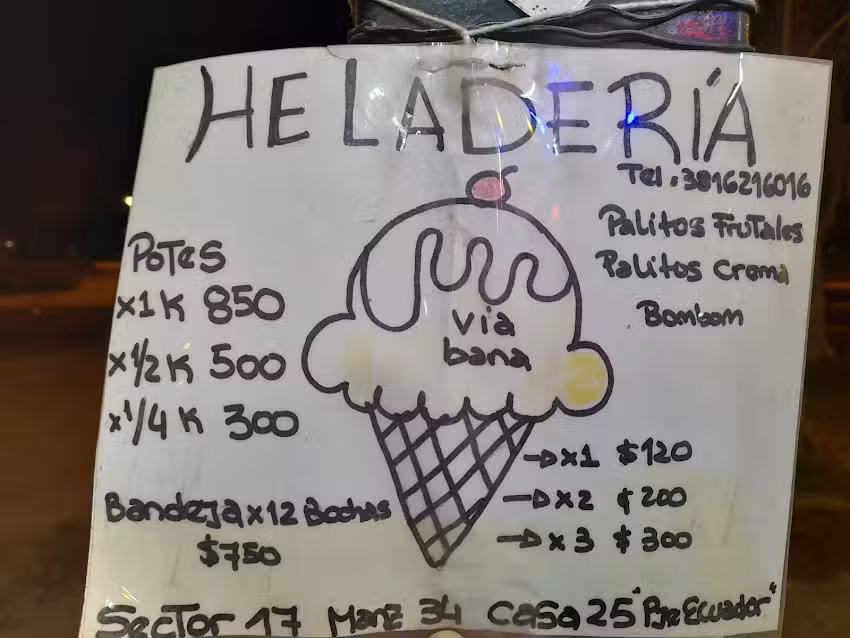 HELADERÍA
Tel. 3816216016
Palitos Frutales
Palitos Crema
Bombom
Potes
x1K 850
x1/2K 500
x1/4K 300
via
bana
x1 $120
x2 $200
x3 $300
Bandeja x12 Bochas
$750
Sector 17 Manz 34 casa 25 "Pje Ecuador"